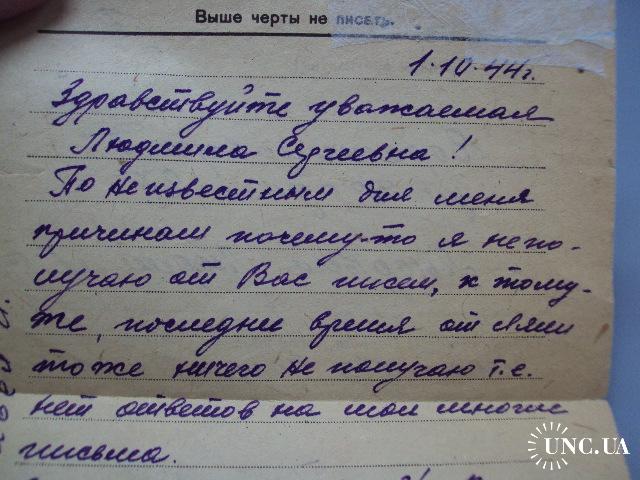 Выше черты не писать.
1.10.44г.
Здравствуйте уважаемая
Людмила Сергеевна!
По неизвестным для меня
причинам почему-то я непо-
лучаю от Вас писем, к тому-
же, последнее время от
тоже ничего не получаю т.е.
нет ответов на мои многие
письма.
UNC.UA